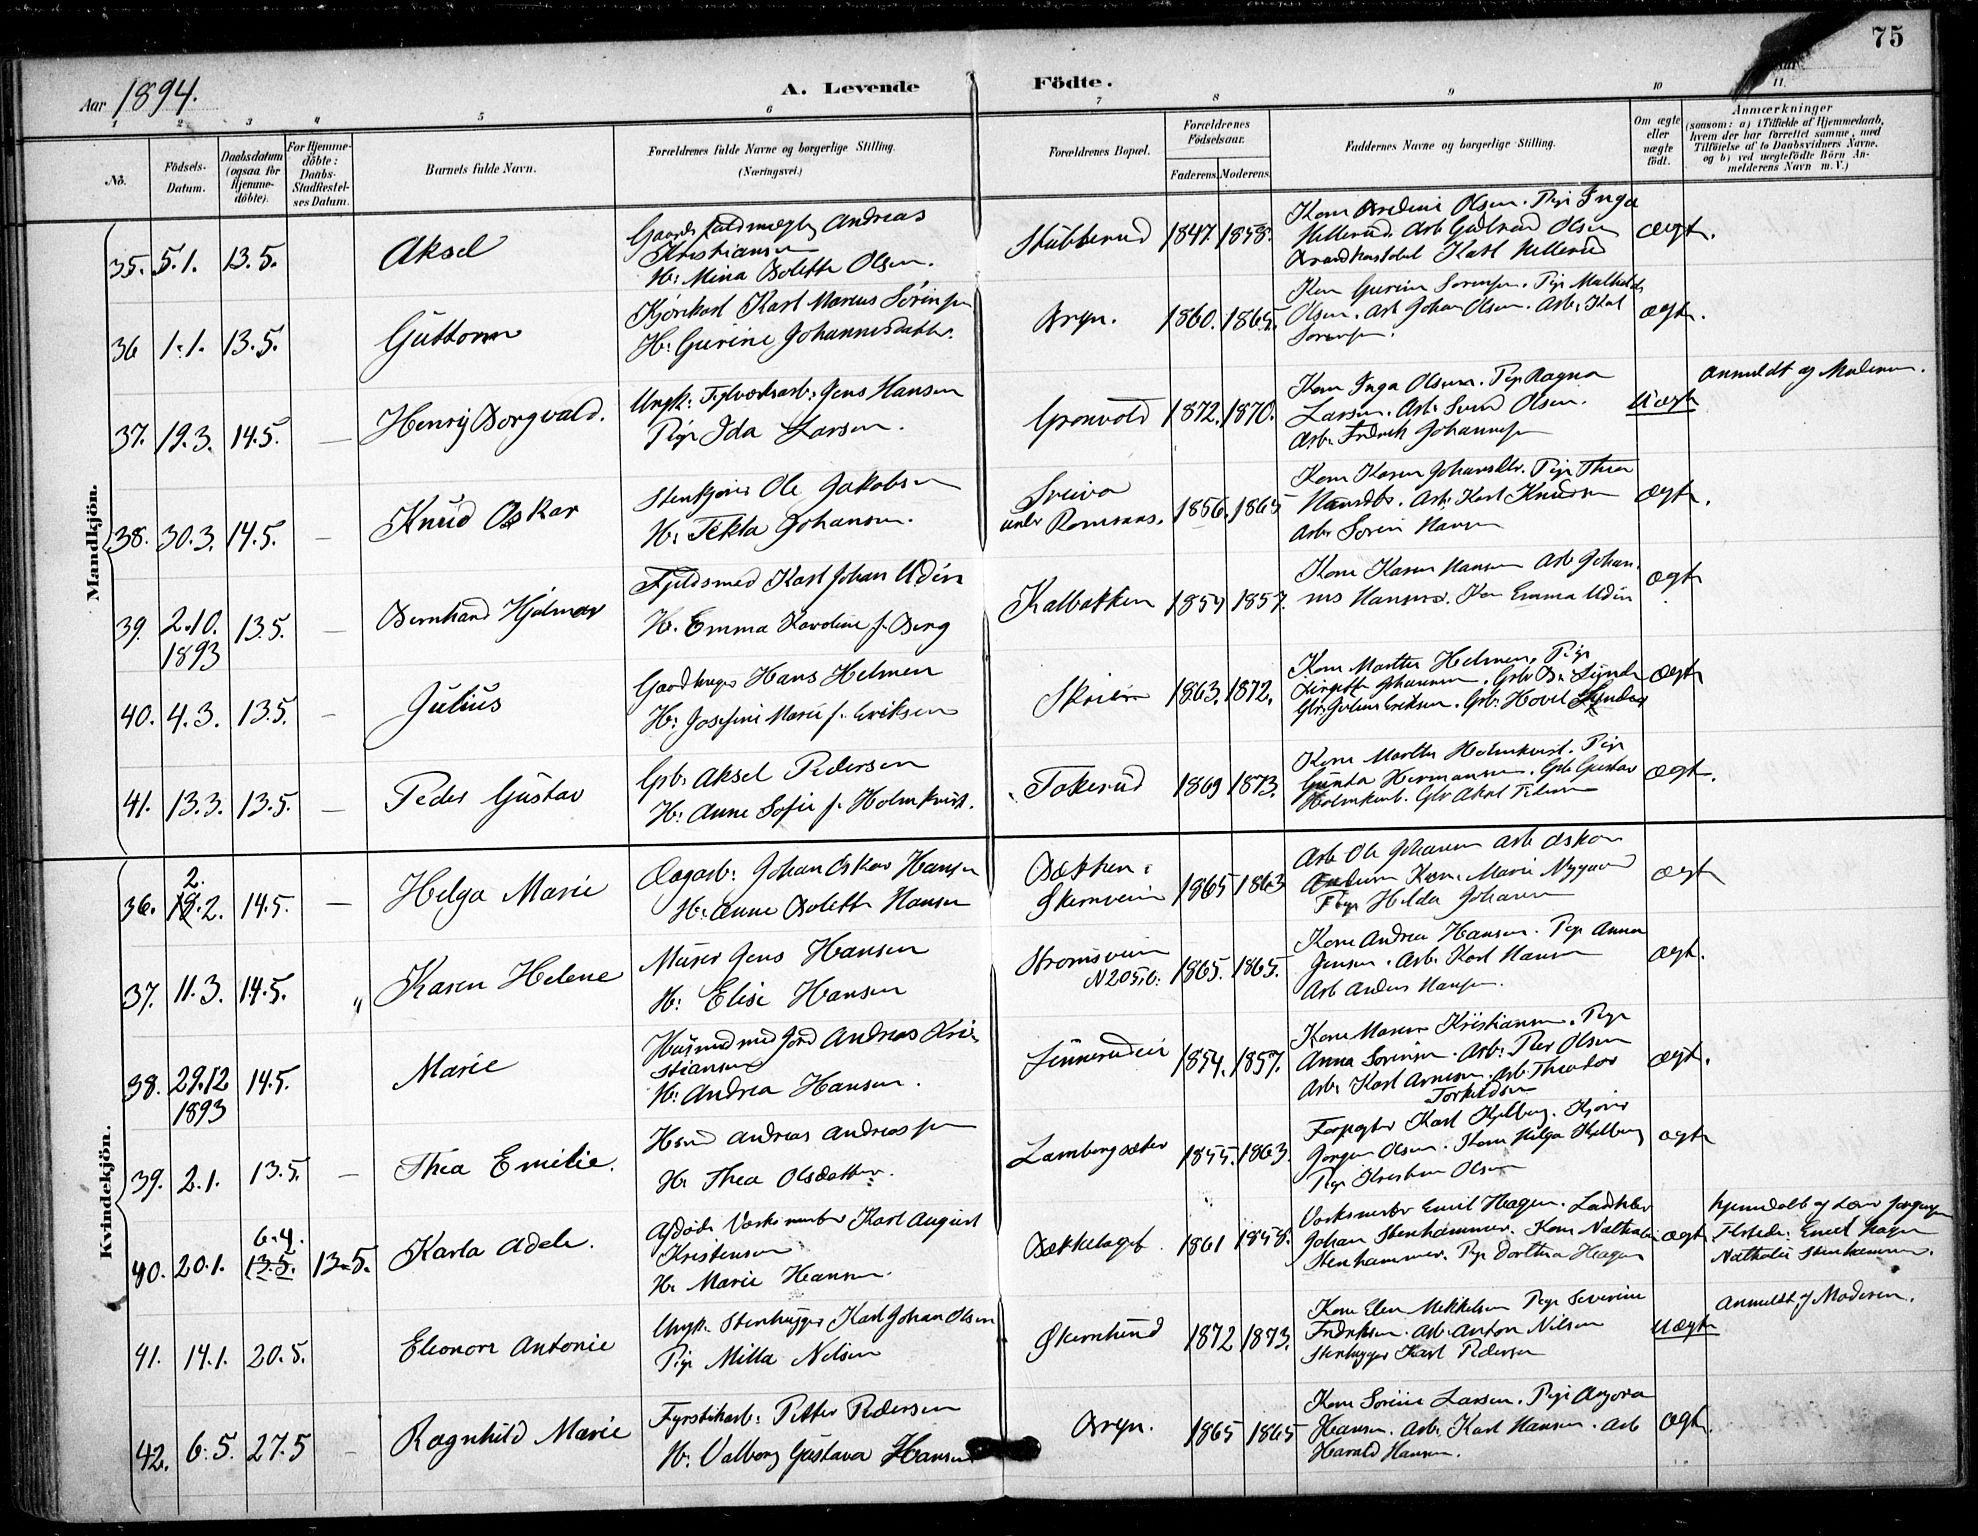 75
Aar 1894. A. Levende Födte.
1 2 3 4 5 6 7 8 9 10 11.
No. Födsels-Datum. Daabsdatum (ogsaa for Hjemme-döbte). For Hjemme-döbte: Daabs-Stadfæstel-ses Datum. Barnets fulde Navn. Forældrenes fulde Navne og borgerlige Stilling. (Næringsvei.) Forældrenes Bopæl. Forældrenes Födselsaar. Faderens. Moderens. Faddernes Navne og borgerlige Stilling. Om ægte eller uægte födt. Anmærkninger (saasom: a) i Tilfælde af Hjemmedaab, hvem der har forrettet samme, med Tilföielse af to Daabsvidners Navne. og b) ved uægtefödte Börn An-melderens Navn m. V.)
Mandkjön.
35. 5.1. 13.5. Aksel
Andreas
Kristiansen
H: Mina Bolette Olsen.
Stubberud 1847. 1858.
Olsen. Pige Inga
Hellerud. Arb Olsen
Karl Hellerud
ægte.
36 1.1. 13.5. Guttorm
Kjørekarl Karl Marius Sørensen
H: Gurine Johannesdatter.
Bryn. 1860. 1865.
Kone Gurine Sorensen. Pige Mathilde
Olsen. Arb Johan Olsen. Arb. Karl
Sorensen.
ægte.
37. 19.3. 14.5. — Henry Borgvald.
Ungk: Teglværksarb. Jens Hansen
Pige Ida Larsen.
Grønvold 1872. 1870.
Kone Inga Olsen. Pige Ragna
Larsen. Arb. Olsen.
Arb. Fredrik Johannesen
Uægte
Anmeldt af Moderen.
38. 30.3. 14.5. — Knud Oskar
Stenkjører Ole Jakobsen
H: Tekla Johansen.
under Romsaas. 1856. 1865
Kone Karen Johansdtr. Pige Thea
Hansdtr. Arb. Karl Knudsen
Arb. Soren Hansen
ægte.
39. 2.10. 1893 13.5. — Bernhard Hjalmar
Karl Johan Udin
H. Emma Karoline f. Berg
Kalbakken 1854 1857.
Kone Karen Hansen Arb Johan-
nes Hansen. Kone Emma Udin
ægte
40. 4.3. 13.5. — Julius
Gaardbruger Hans Helmen
H: Josefine Marie f. Eriksen
1863. 1872.
Kone Marthe Helmen. Pige
Johannesen. Gbr.
Gbr. Julius Eriksen. Gbr. Hovel
ægte
41. 13.3. 13.5. — Peder Gustav
Gbr. Aksel Pedersen
H: Anne Sofie f. Holmkvist.
Tokerud 1869 1873.
Kone Marthe Holmkvist. Pige
Hermansen. Gbr Gustav
Holmkvist. Gbr Aksel Pedersen
ægte.
Kvindekjön.
36. 2. 18.2. 14.5. — Helga Marie
Dagarb: Johan Oskar Hansen
H: Anne Bolette Hansen
Bakken i
Økernveien 1865 1863
Arb Ole Johansen Arb Oskar
Andersen Kone Marie Nygaard
Pige Hilda Johansen
ægte
37. 11.3. 14.5. „ Karen Helene
Murer Jens Hansen
H: Elise Hansen
Strømsveien
N205b. 1865. 1865.
Kone Andrea Hansen. Pige Anna
Jensen. Arb. Karl Hansen
Arb Anders Hansen.
ægte.
38. 29.12 1893 14.5. Marie
Husmand med Jord Andreas Kri-
stiansen
H: Andrea Hansen.
1854. 1857.
Kone Maren Kristiansen. Pige
Anna Sorensen. Arb. Peter Olsen
Arb. Karl Arnesen. Arb Theodor
Torkildsen
ægte.
39. 2.1. 13.5. — Thea Emilie.
Andreas Andreassen
H. Thea Olsdatter.
Lambergsæter 1855. 1863.
Forpagter Karl Kjelberg. Kjører
Jørgen Olsen. Kone Helga Kjelberg
Pige Olsen
ægte
40. 20.1. 6.4. 13.5. 13.5. Karla Adele.
Afdøde Værksmester Karl August
Kristensen
H. Marie Hansen.
Bækkelaget 1861 1858.
Værksmester Emil Hagen.
Johan Stenhammer. Kone Nathalie
Stenhammer. Pige Dorthea Hagen
ægte
hjemmedøbt af
Tilstede: Emil Hagen
Nathalie Stenhammer.
41. 14.1. 20.5. Eleonore Antonie
Ungk. Stenhugger Karl Johan Olsen
Pige Milla Nilsen
Økernlund 1872 1873.
Kone Elen Mikkelsen Pige Severine
Fredriksen. Arb. Anton Nilsen
Stenhugger Karl Pedersen
Uægte
Anmeldt af Moderen.
42. 6.5. 27.5 — Ragnhild Marie
Fyrstikarb: Petter Pedersen
H. Valborg Gustava Hansen
Bryn. 1865 1865
Kone Sorine Larsen. Pige
Hansen. Arb. Karl Hansen. Arb
Harald Hansen.
ægte.